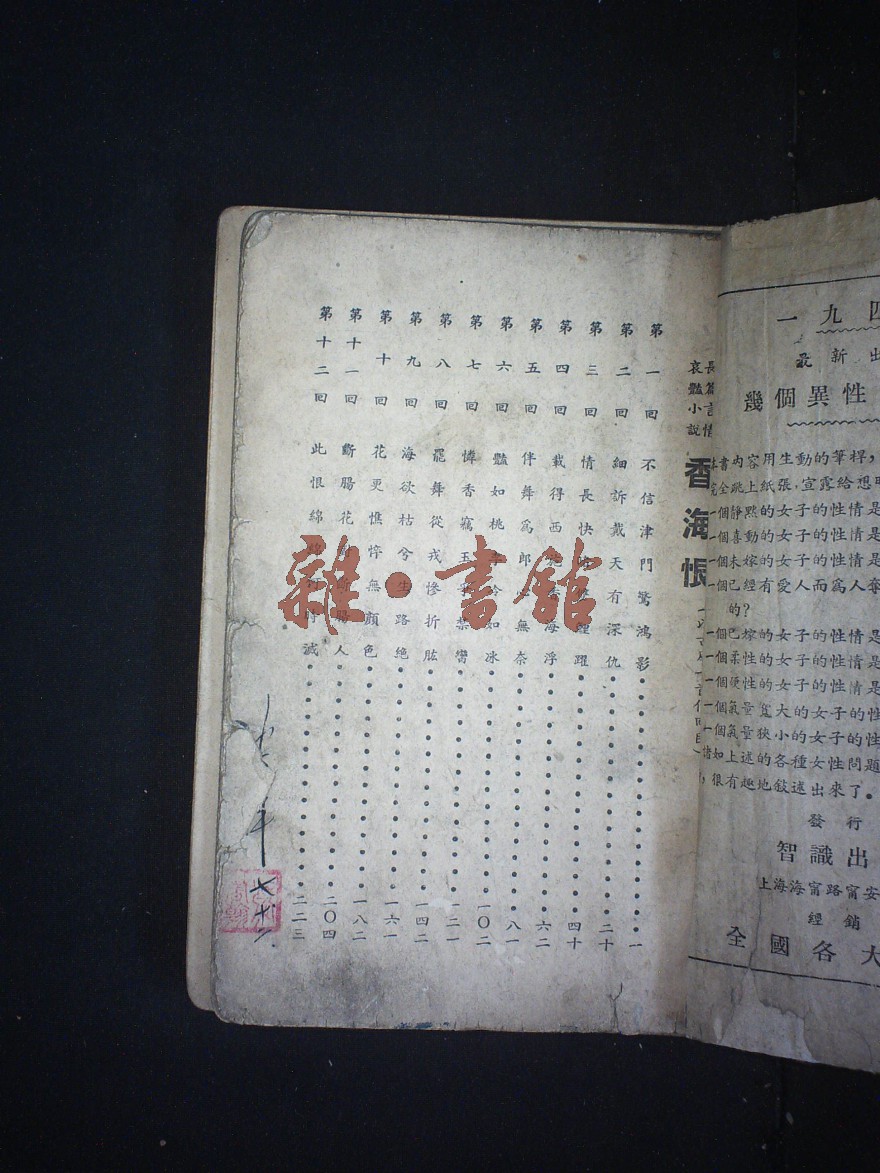 一九四
最新出
幾個異性
本書內容用生動的筆桿，
完全跳上紙張，宣露給想
一個靜默的女子的性情是
一個喜動的女子的性情是
一個未嫁的女子的性情是
一個已經有愛人而爲人奪
的？
一個已嫁的女子的性情是
一個柔性的女子的性情是
一個硬性的女子的性情是
一個氣量寬大的女子的性
一個氣量狹小的女子的性
諸如上述的各種女性問題
，很有趣地敍述出來了。
發行
智識出
上海海甯路甯安
經銷
全國各大
長篇言情
哀豔小說
香海恨
第一回 不信津門驚鴻影 一
第二回 細訴戴天有深仇 二十
第三回 情長快 躍 四十
第四回 載得西 海浮 六二
第五回 伴舞爲郎 無奈 八一
第六回 豔如桃李冷如冰 一〇二
第七回 憐香竊玉 禁臠 一二一
第八回 罷舞從戎慘折肱 一四二
第九回 海欲枯兮生路絕 一六一
第十回 花更憔悴無顏色 一八二
第十一回 斷腸花 斷腸人 二〇四
第十二回 此恨綿綿何時滅 二二三
雜·書館